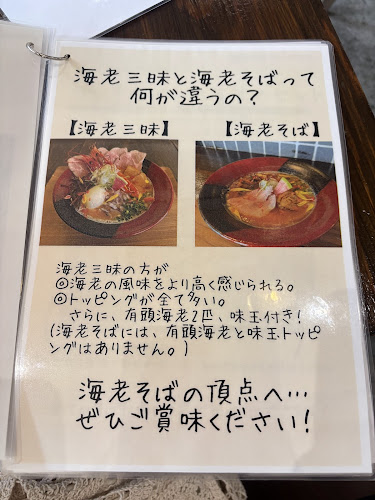 海老三昧と海老そばって
何が違うの?
【海老三昧】 【海老そば】
海老三昧の方が
◎海老の風味をより高く感じられる。
◎トッピングが全て多い。
さらに、有頭海老2匹、味玉付き!
(海老そばには、有頭海老と味玉トッピ
ングはありません。)
海老そばの頂点へ…
ぜひご賞味ください!